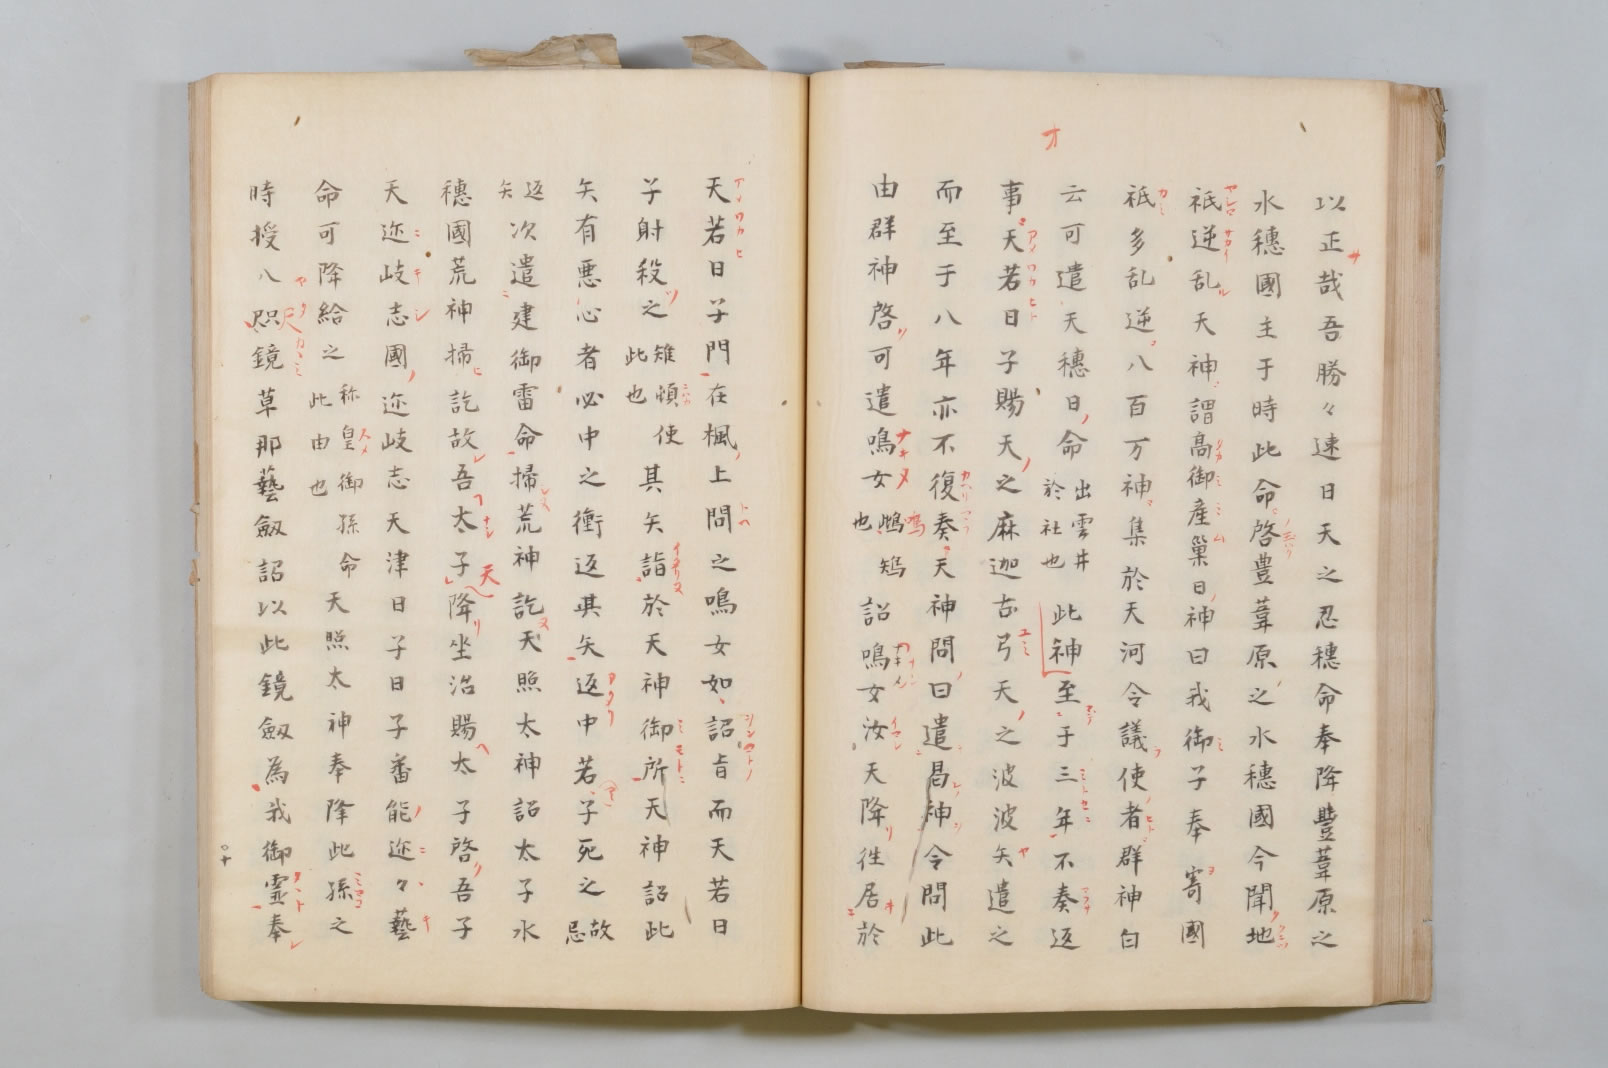 以正哉吾勝々速日天之忍穗命奉降豐葦原之
水穗國主于時此命啓豊葦原之水穗國今聞地
祇逆乱天神謂高御産巢日神曰我御子奉寄國
祇多乱逆八百万神集於天河令議使者群神白
云可遣天穗日命出雲井於社也此神至于三年不奏返
事天若日子賜天之麻迦古弓天之波波矢遣之
而至于八年亦不復奏天神問曰遣曷神令問此
由群神啓可遣鳴女鴫鴙也詔鳴女汝天降徃居於
天若日子門在楓上問之鳴女如詔旨而天若日
子射殺之雉頓此也使其矢詣於天神御所天神詔此
矢有悪心者必中之衝返其矢返中若子死之故忌
返矢次遣建御雷命掃荒神訖天照太神詔太子水
穗國荒神掃訖故吾太子降坐治賜太子啓吾子
天迩岐志國迩岐志天津日子日子番能迩々藝
命可降給之称皇御孫命此由也天照太神奉降此孫之
時授八咫鏡草那藝劔詔以此鏡劔為我御霊奉